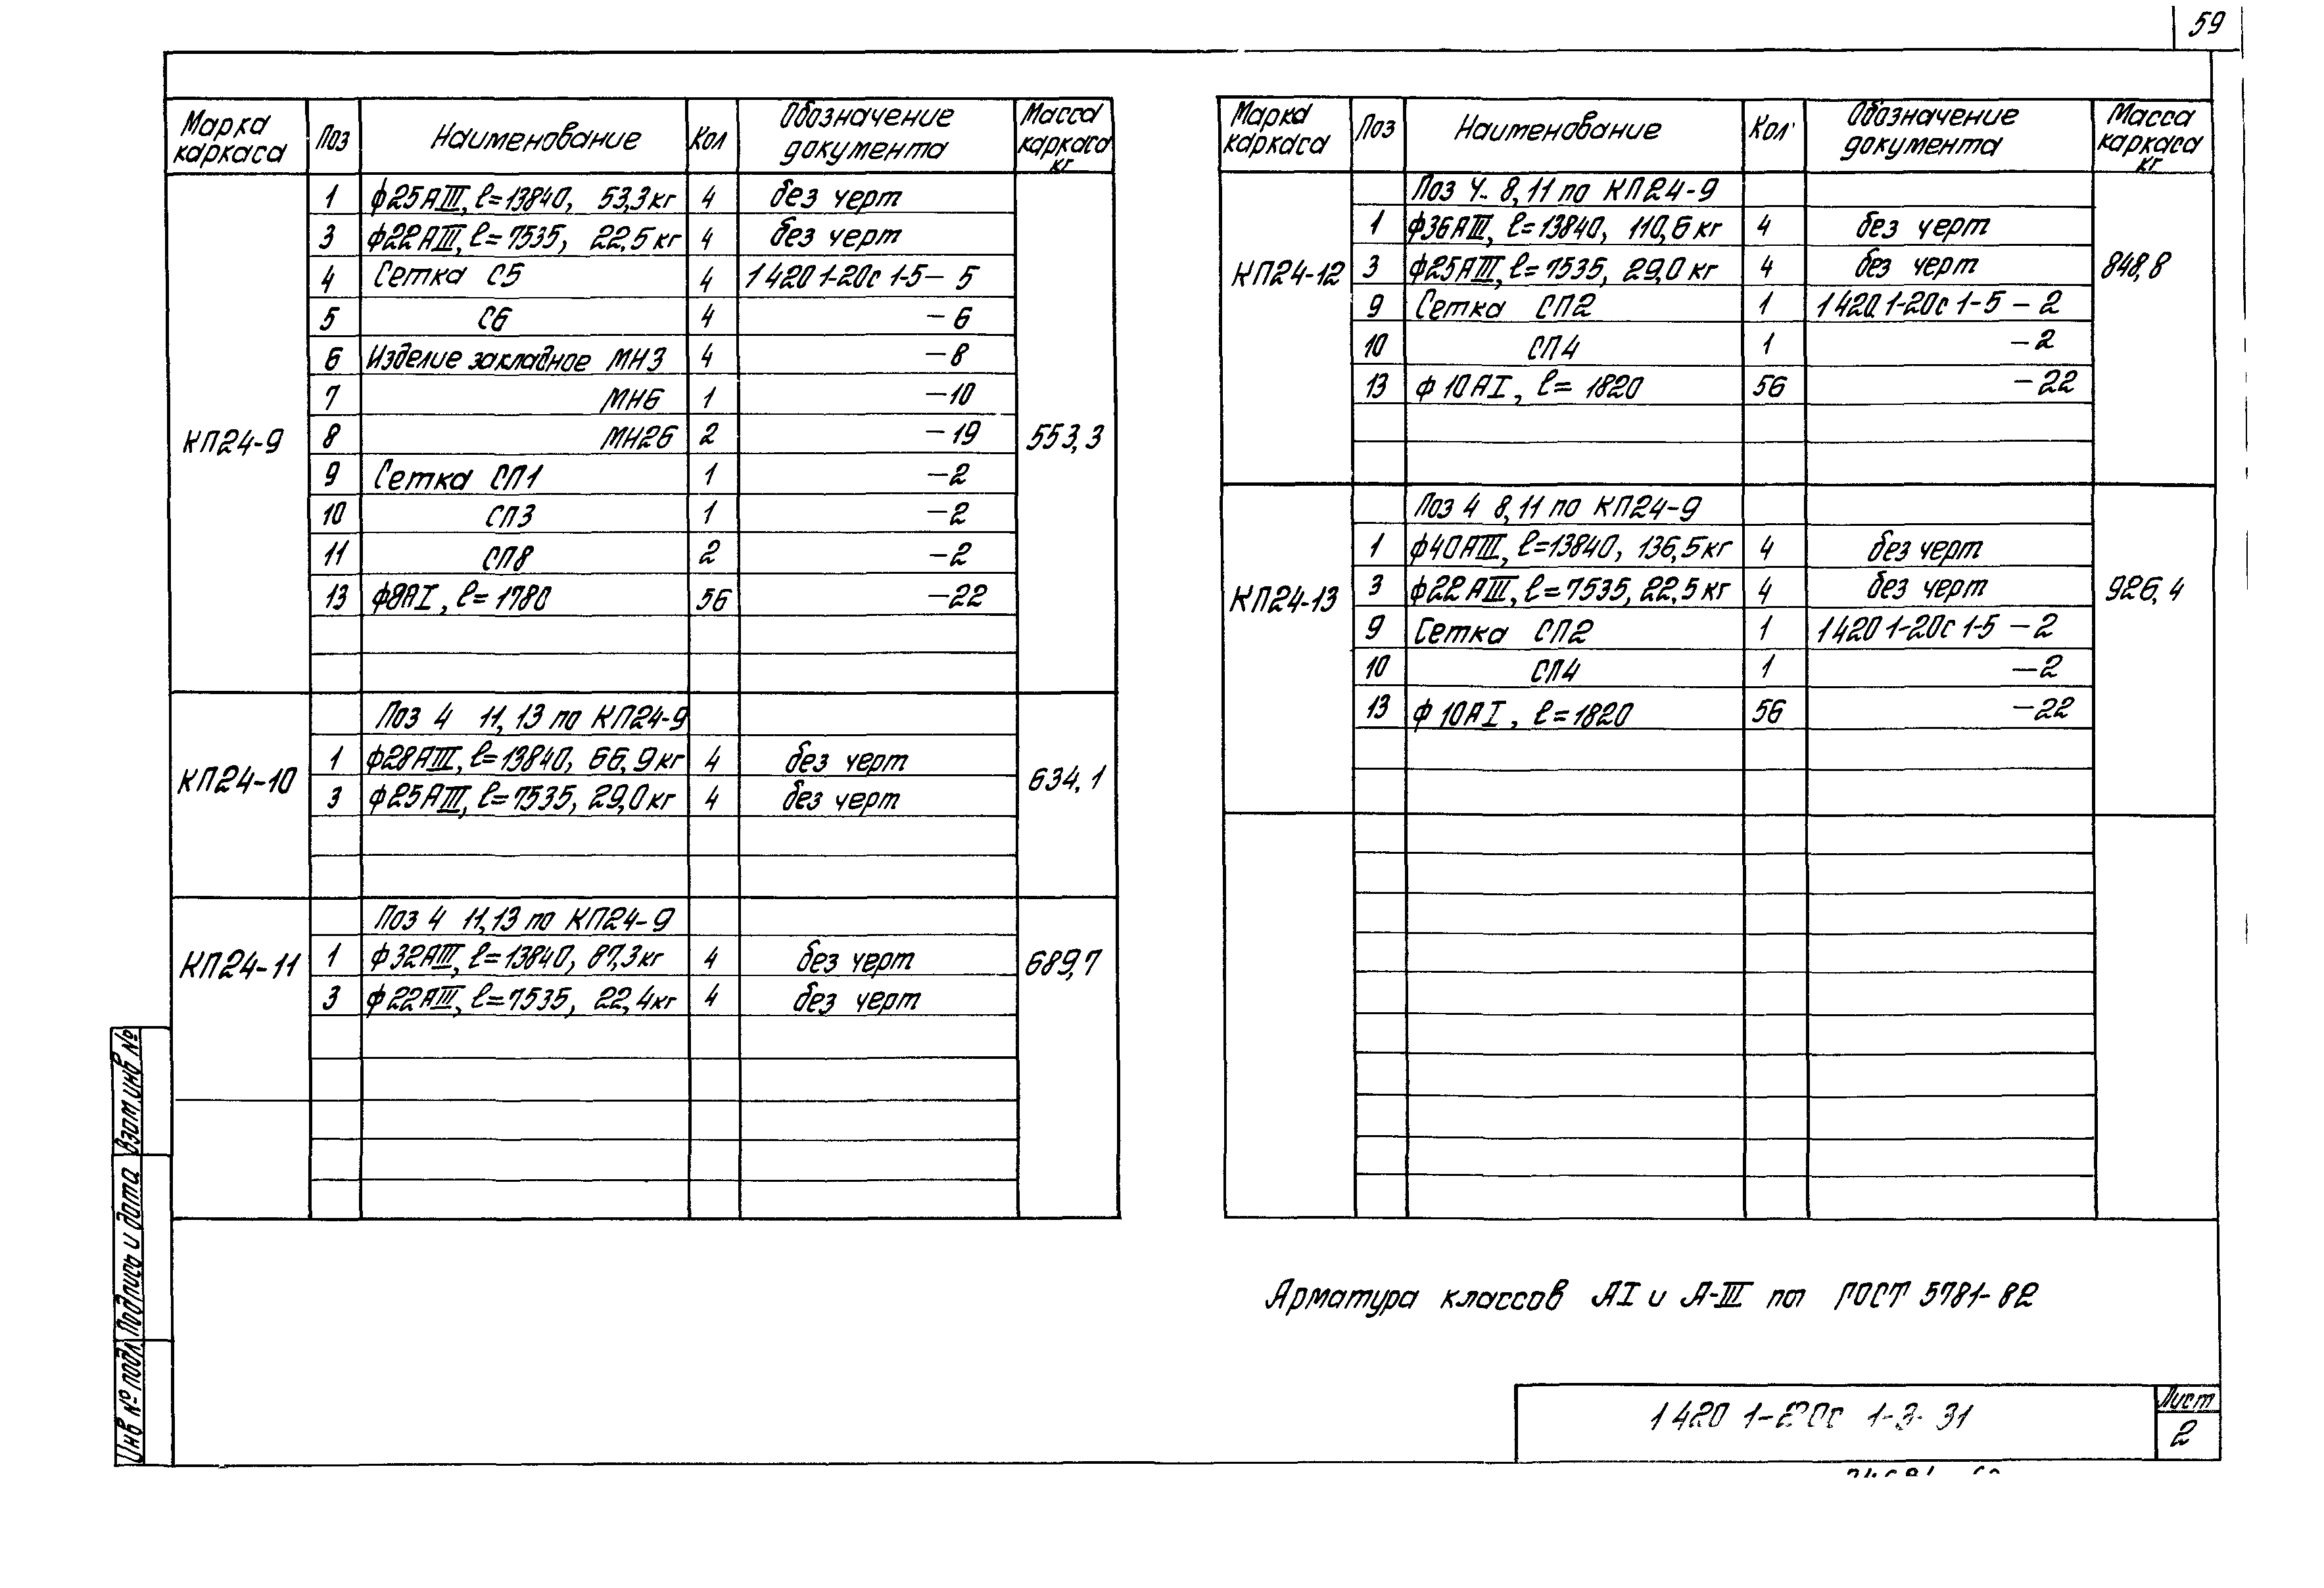 59
Марка каркаса Поз Наименование Кол Обозначение документа Масса каркаса кг
КП24-9 553,3
1 ф25АIII, ℓ=13840, 53,3кг 4 без черт
3 ф22АIII, ℓ=7535, 22,5кг 4 без черт
4 Сетка С5 4 1 420 1-20с 1-5- 5
5 С6 4 -6
6 Изделие закладное МН3 4 -8
7 МН6 1 -10
8 МН26 2 -19
9 Сетка СП1 1 -2
10 СП3 1 -2
11 СП8 2 -2
13 ф8АI, ℓ=1780 56 -22
КП24-10 634,1
Поз 4 11, 13 по КП24-9
1 ф28АIII, ℓ=13840, 66,9кг 4 без черт
3 ф25АIII, ℓ=7535, 29,0кг 4 без черт
КП24-11 689,7
Поз 4 11,13 по КП24-9
1 ф32АIII, ℓ=13840, 87,3кг 4 без черт
3 ф22АIII, ℓ=7535, 22,4кг 4 без черт
Марка каркаса Поз Наименование Кол Обозначение документа Масса каркаса кг
КП24-12 848,8
Поз 4.. 8,11 по КП24-9
1 ф36АIII, ℓ=13840, 110,6кг 4 без черт
3 ф25АIII, ℓ=7535, 29,0кг 4 без черт
9 Сетка СП2 1 1 420.1-20с 1-5 -2
10 СП4 1 -2
13 ф10АI, ℓ= 1820 56 -22
КП24-13 926,4
Поз 4 8,11 по КП24-9
1 ф40АIII, ℓ=13840, 136,5кг 4 без черт
3 ф22АIII, ℓ=7535, 22,5кг 4 без черт
9 Сетка СП2 1 1 420 1-20с 1-5 -2
10 СП4 1 -2
13 ф10АI, ℓ=1820 56 -22
Арматура классов АI и А-III по ГОСТ 5781-82
1 420 1-20с 1-3- 31
Лист
2
Инв № подл. Подпись и дата Взам инв №